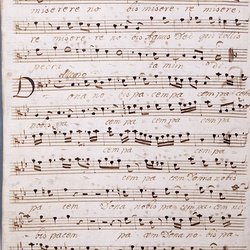 miserere no bis miserere misere
re misere re no bis Agnus Dei qui tollis
pecca ta mun di
allegro
Dona no bis pa cem pa cem pa cem
dona pa cem pa cem pa cem
cem pa cem pa cem
cem pa cem Dona nobis
pa cem Dona nobis pa cem pa cem
bis pacem pa cem Dona no bis pa